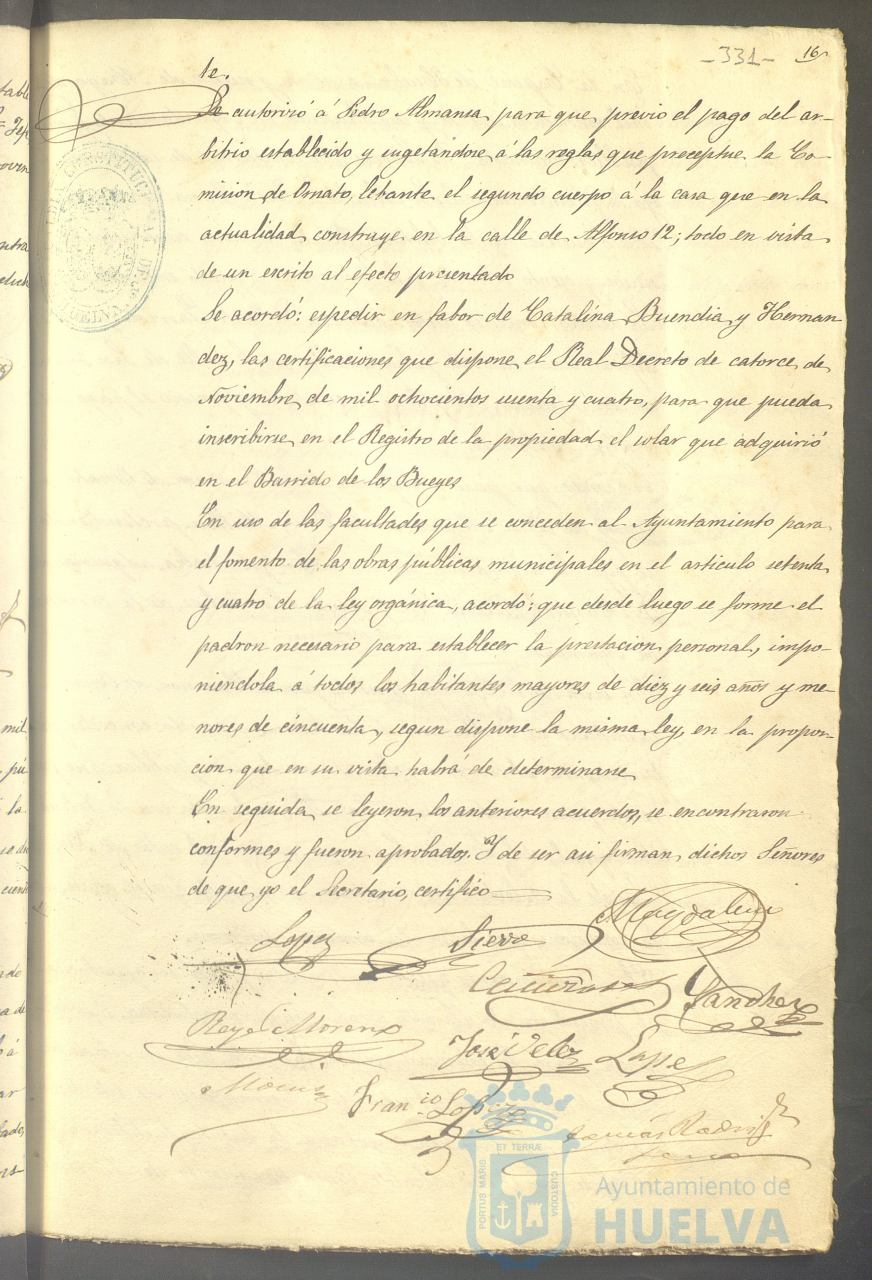 -331-
16
1e.
Se autorizó á Pedro Almansa, para que previo el pago del ar-
bitrio establecido y sugetandose á las reglas que preceptue la Co-
mision de Ornato, lebante el segundo cuerpo á la casa que en la
actualidad construye en la calle de Alfonso 12; todo en vista
de un escrito al efecto presentado
Se acordó: espedir en fabor de Catalina Buendia y Hernan
dez, las certificaciones que dispone el Real Decreto de catorce de
Noviembre de mil ochocientos cuenta y cuatro, para que pueda
inscribirse en el Registro de la propiedad el solar que adquirió
en el Barrido de los Bueyes
En uso de las facultades que se conceden al Ayuntamiento para
el fomento de las obras públicas municipales en el articulo setenta
y cuatro de la ley orgánica, acordó: que desde luego se forme el
padron necesario para establecer la prestacion personal, impo-
niendola á todos los habitantes mayores de diez y seis años y me-
nores de cincuenta, segun dispone la misma ley, en la propor-
cion que en su vista habrá de determinarse
En seguida se leyeron los anteriores acuerdos, se encontraron
conformes y fueron aprobados. Y de ser asi firman dichos Señores
de que yo el Secretario, certifico
Lopez Sierra Magdalena
Sanchez
Reyes Moreno
José Velez Lopez
Fran.co Lopez
Tomás Rodri
CONSTITUCIONAL DE
HUELVA
ET TERRÆ
PORTUS MARIS
CUSTODIA
Ayuntamiento de
HUELVA